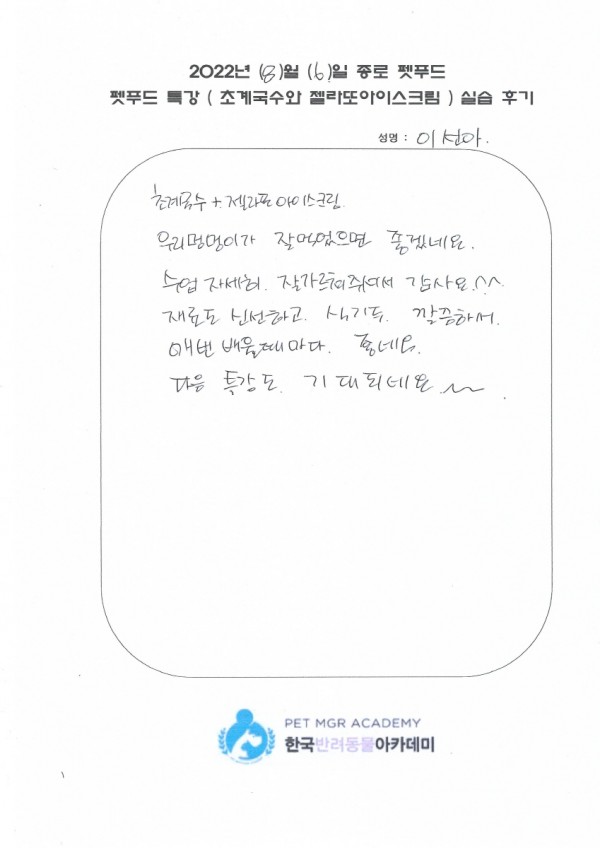 2022년 (8)월 (6)일 종로 펫푸드
펫푸드 특강 ( 초계국수와 젤라또아이스크림 ) 실습 후기
성명 : 이선아.
초계국수 + 젤라또아이스크림
우리멍멍이가 잘먹었으면 좋겠네요.
수업 자세히. 잘가르쳐주셔서 감사요.^^
재료도 신선하고. 식기도. 깔끔하서.
매번 배울때마다. 좋네요.
다음 특강도. 기대되네요 ~
PET MGR ACADEMY
한국반려동물아카데미